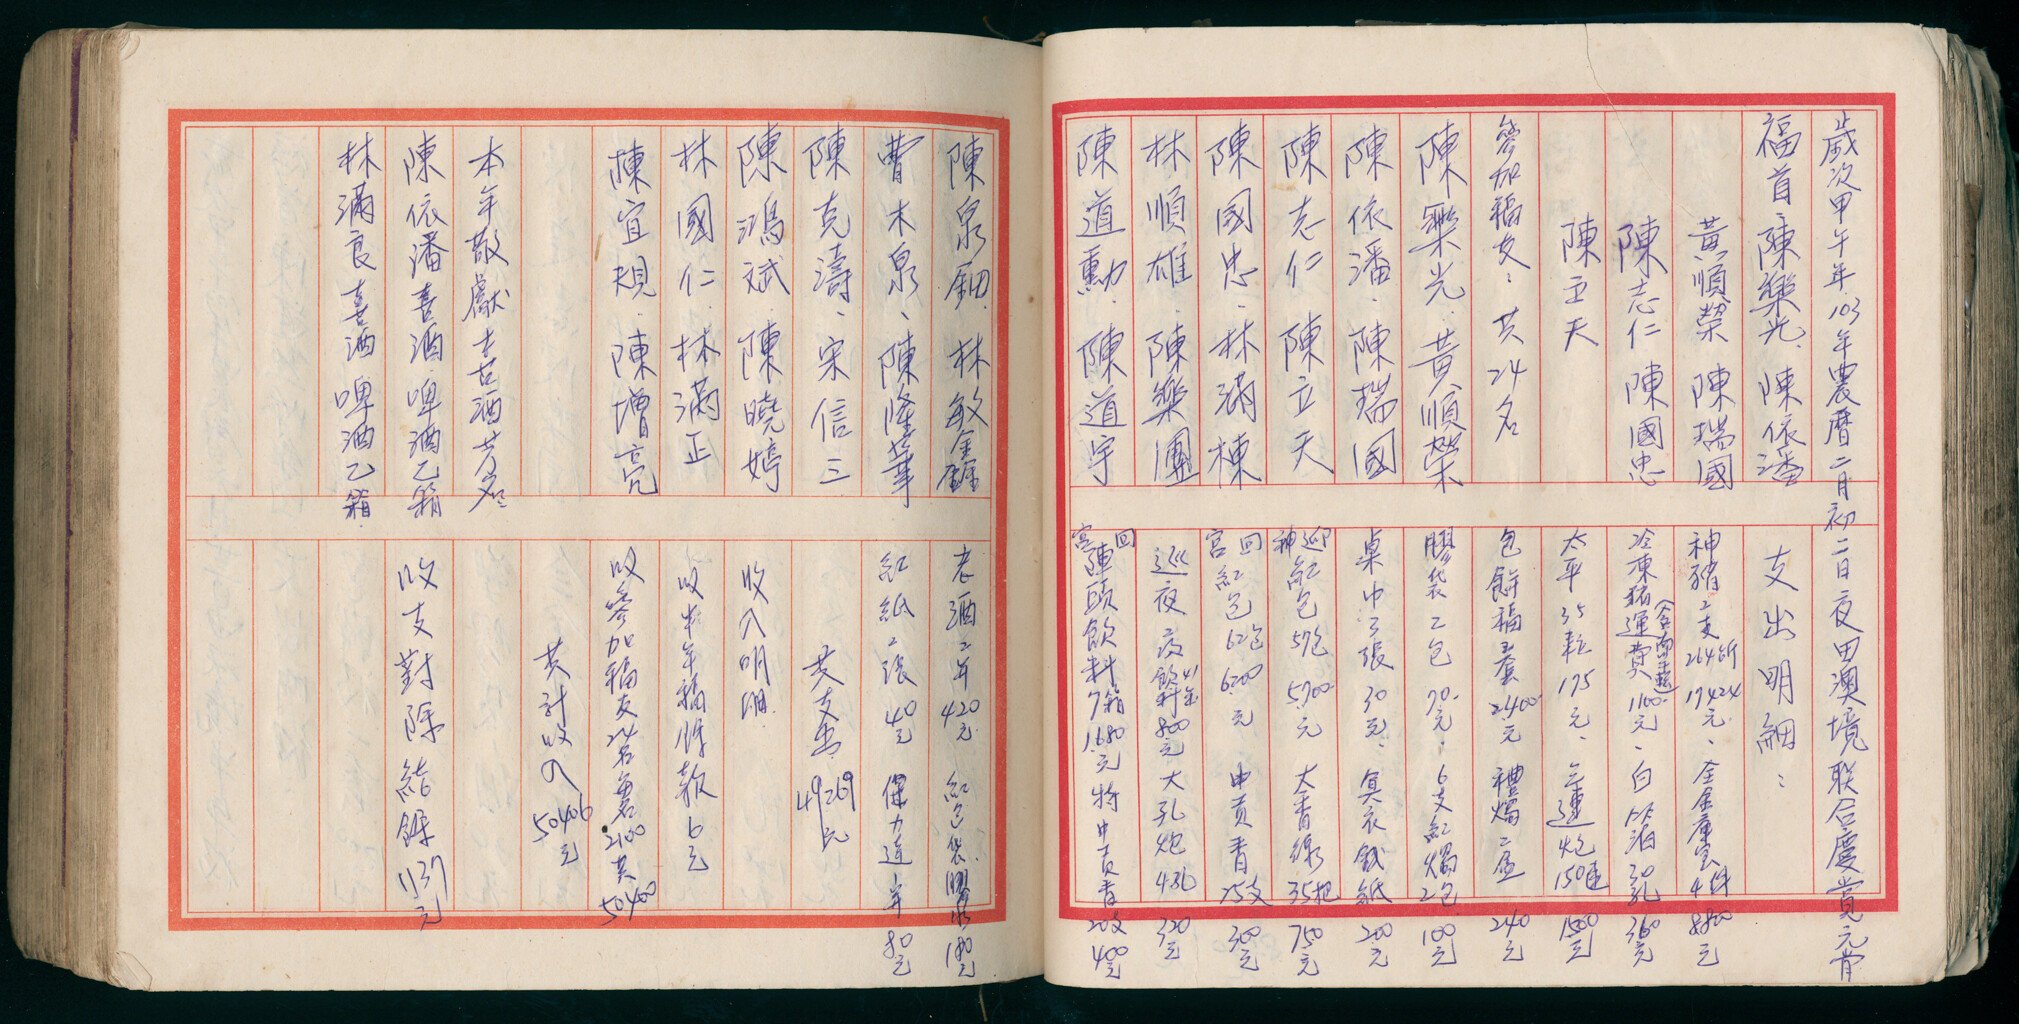 歲次甲午年103年農曆二月初二日夜田澳境联合慶賞元宵
福首 陳樂光、陳依潘
黃順榮 陳瑞國
陳志仁 陳國忠
陳立天
參加福友：共24名
陳樂光、黃順榮
陳依潘、陳瑞國
陳志仁 陳立天
陳國忠、林滿棟
林順雄、陳樂團
陳道勳、陳道宇
支出明細：
神豬二支264斤17424元、全金庫宝4件880元
冷凍豬運費(含南竿巡)1100元、白以酒30瓶360元
太平35粒175元、三連炮150連1500元
包餅福5套2400元 禮燭二盒240元
膠袋2包70元、6支紅燭2包100元
桌巾3張30元、冥衣銭紙200元
迎神紅包57包5700元 大香線35把750元
回宮紅包62包6200元 中貢香15支300元
巡夜夜飲料41箱800元 大孔炮4孔320元
回宮陣頭飲料7箱1680元 特中貢香20支400元
陳泉鈿、林敏金
曹木泉、陳隆華
陳克濤、宋信三
陳鴻斌 陳曉婷
林國仁、林滿正
陳宜規、陳增亮
本年敬獻老酒芳名：
陳依潘喜酒、啤酒乙箱
林滿良喜酒 啤酒乙箱
老酒二年420元 紅包袋、膠水180元
紅紙2張40元 保力達1年80元
共支出49269元
收入明細
收半年福餘款6元
收參加福友24名每名2100共50400
共計收入50406元
收支對除結餘1137元